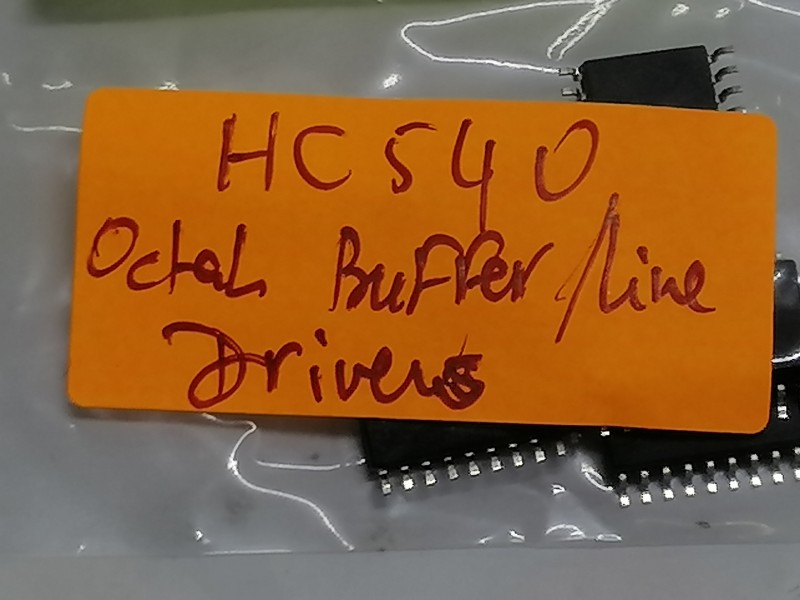 HC540
Octal Buffer/line
Drivers